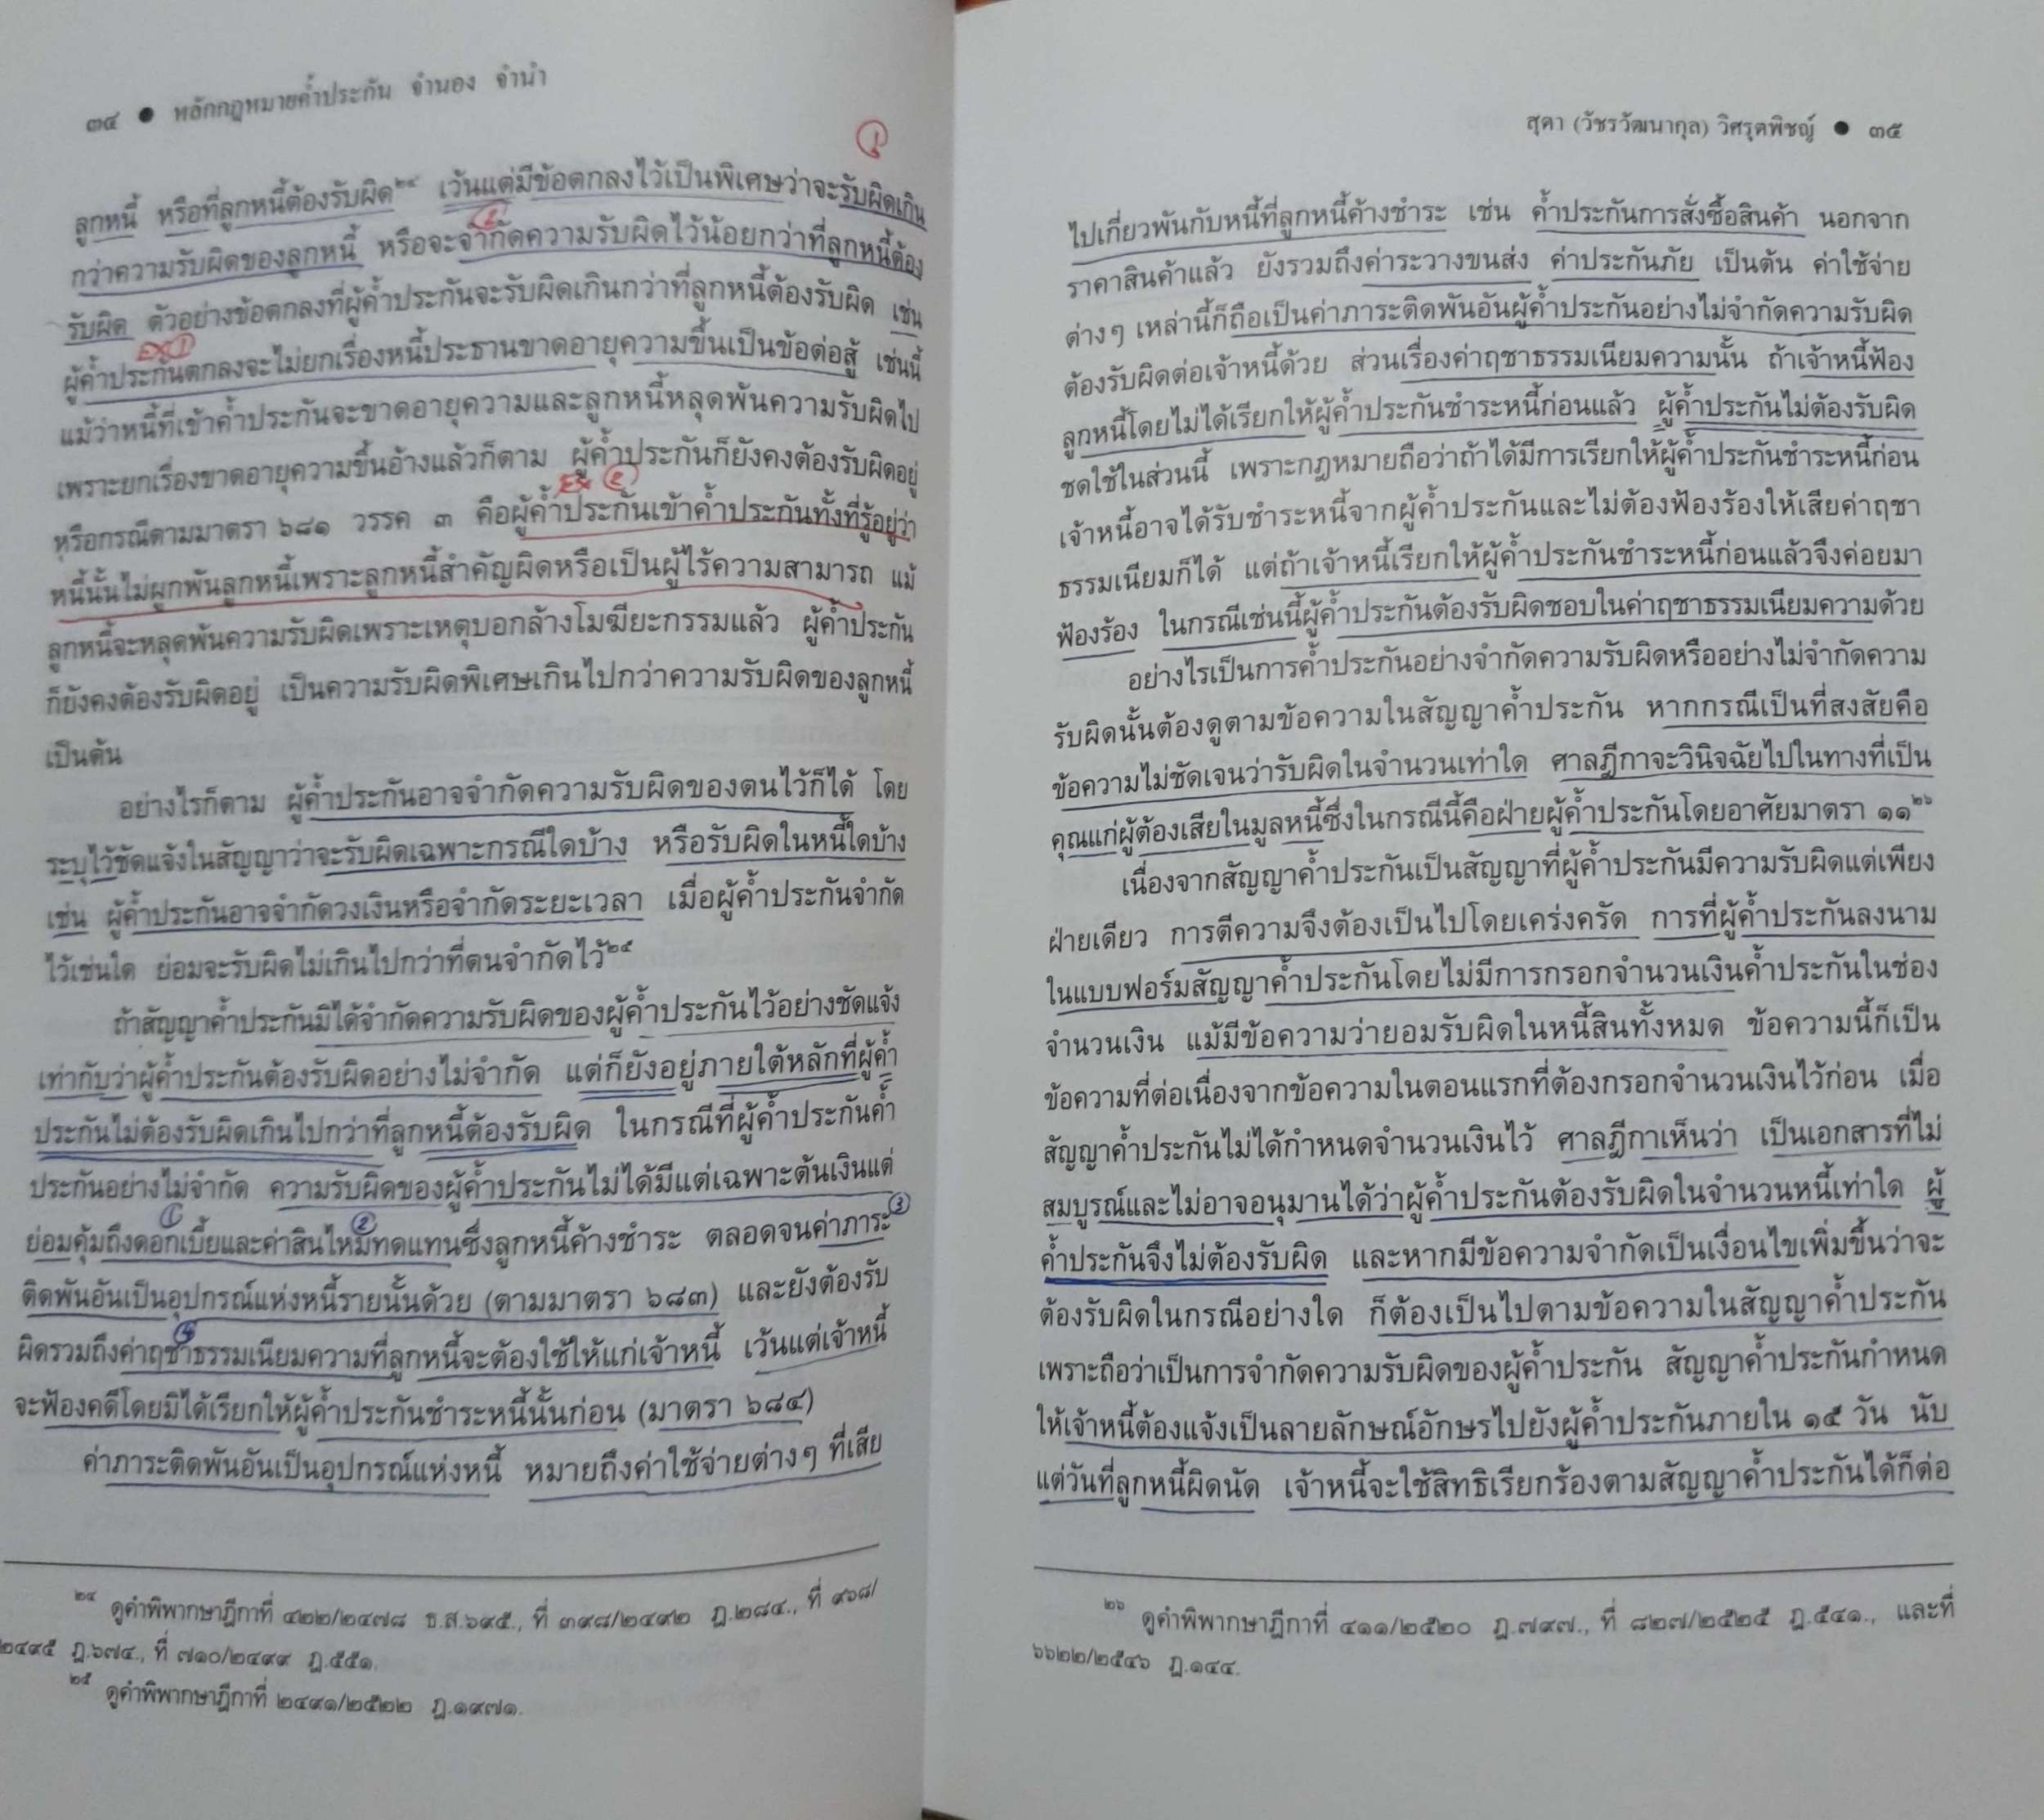 ๓๔ ● หลักกฎหมายค้ำประกัน จำนอง จำนำ
ลูกหนี้ หรือที่ลูกหนี้ต้องรับผิด๒๔ เว้นแต่มีข้อตกลงไว้เป็นพิเศษว่าจะรับผิดเกิน
กว่าความรับผิดของลูกหนี้ หรือจะจำกัดความรับผิดไว้น้อยกว่าที่ลูกหนี้ต้อง
รับผิด ตัวอย่างข้อตกลงที่ผู้ค้ำประกันจะรับผิดเกินกว่าที่ลูกหนี้ต้องรับผิด เช่น
ผู้ค้ำประกันตกลงจะไม่ยกเรื่องหนี้ประธานขาดอายุความขึ้นเป็นข้อต่อสู้ เช่นนี้
แม้ว่าหนี้ที่เข้าค้ำประกันจะขาดอายุความและลูกหนี้หลุดพ้นความรับผิดไป
เพราะยกเรื่องขาดอายุความขึ้นอ้างแล้วก็ตาม ผู้ค้ำประกันก็ยังคงต้องรับผิดอยู่
หรือกรณีตามมาตรา ๖๘๑ วรรค ๓ คือผู้ค้ำประกันเข้าค้ำประกันทั้งที่รู้อยู่ว่า
หนี้นั้นไม่ผูกพันลูกหนี้เพราะลูกหนี้สำคัญผิดหรือเป็นผู้ไร้ความสามารถ แม้
ลูกหนี้จะหลุดพ้นความรับผิดเพราะเหตุบอกล้างโมฆียะกรรมแล้ว ผู้ค้ำประกัน
ก็ยังคงต้องรับผิดอยู่ เป็นความรับผิดพิเศษเกินไปกว่าความรับผิดของลูกหนี้
เป็นต้น
อย่างไรก็ตาม ผู้ค้ำประกันอาจจำกัดความรับผิดของตนไว้ก็ได้ โดย
ระบุไว้ชัดแจ้งในสัญญาว่าจะรับผิดเฉพาะกรณีใดบ้าง หรือรับผิดในหนี้ใดบ้าง
เช่น ผู้ค้ำประกันอาจจำกัดวงเงินหรือจำกัดระยะเวลา เมื่อผู้ค้ำประกันจำกัด
ไว้เช่นใด ย่อมจะรับผิดไม่เกินไปกว่าที่ตนจำกัดไว้๒๕
ถ้าสัญญาค้ำประกันมิได้จำกัดความรับผิดของผู้ค้ำประกันไว้อย่างชัดแจ้ง
เท่ากับว่าผู้ค้ำประกันต้องรับผิดอย่างไม่จำกัด แต่ก็ยังอยู่ภายใต้หลักที่ผู้ค้ำ
ประกันไม่ต้องรับผิดเกินไปกว่าที่ลูกหนี้ต้องรับผิด ในกรณีที่ผู้ค้ำประกันค้ำ
ประกันอย่างไม่จำกัด ความรับผิดของผู้ค้ำประกันไม่ได้มีแต่เฉพาะต้นเงินแต่
ย่อมคุ้มถึงดอกเบี้ยและค่าสินไหมทดแทนซึ่งลูกหนี้ค้างชำระ ตลอดจนค่าภาระ
ติดพันอันเป็นอุปกรณ์แห่งหนี้รายนั้นด้วย (ตามมาตรา ๖๘๓) และยังต้องรับ
ผิดรวมถึงค่าฤชาธรรมเนียมความที่ลูกหนี้จะต้องใช้ให้แก่เจ้าหนี้ เว้นแต่เจ้าหนี้
จะฟ้องคดีโดยมิได้เรียกให้ผู้ค้ำประกันชำระหนี้นั้นก่อน (มาตรา ๖๘๔)
ค่าภาระติดพันอันเป็นอุปกรณ์แห่งหนี้ หมายถึงค่าใช้จ่ายต่างๆ ที่เสีย
๒๔ ดูคำพิพากษาฎีกาที่ ๔๒๒/๒๔๗๘ ธ.ส.๖๙๕., ที่ ๓๙๘/๒๔๙๒ ฎ.๒๘๔., ที่ ๙๖๘/
๒๔๙๕ ฎ.๖๗๔., ที่ ๗๑๐/๒๔๙๙ ฎ.๕๕๑.
๒๕ ดูคำพิพากษาฎีกาที่ ๒๔๙๑/๒๕๒๒ ฎ.๑๙๗๑.
สุดา (วัชรวัฒนากุล) วิศรุตพิชญ์ ● ๓๕
ไปเกี่ยวพันกับหนี้ที่ลูกหนี้ค้างชำระ เช่น ค้ำประกันการสั่งซื้อสินค้า นอกจาก
ราคาสินค้าแล้ว ยังรวมถึงค่าระวางขนส่ง ค่าประกันภัย เป็นต้น ค่าใช้จ่าย
ต่างๆ เหล่านี้ก็ถือเป็นค่าภาระติดพันอันผู้ค้ำประกันอย่างไม่จำกัดความรับผิด
ต้องรับผิดต่อเจ้าหนี้ด้วย ส่วนเรื่องค่าฤชาธรรมเนียมความนั้น ถ้าเจ้าหนี้ฟ้อง
ลูกหนี้โดยไม่ได้เรียกให้ผู้ค้ำประกันชำระหนี้ก่อนแล้ว ผู้ค้ำประกันไม่ต้องรับผิด
ชดใช้ในส่วนนี้ เพราะกฎหมายถือว่าถ้าได้มีการเรียกให้ผู้ค้ำประกันชำระหนี้ก่อน
เจ้าหนี้อาจได้รับชำระหนี้จากผู้ค้ำประกันและไม่ต้องฟ้องร้องให้เสียค่าฤชา
ธรรมเนียมก็ได้ แต่ถ้าเจ้าหนี้เรียกให้ผู้ค้ำประกันชำระหนี้ก่อนแล้วจึงค่อยมา
ฟ้องร้อง ในกรณีเช่นนี้ผู้ค้ำประกันต้องรับผิดชอบในค่าฤชาธรรมเนียมความด้วย
อย่างไรเป็นการค้ำประกันอย่างจำกัดความรับผิดหรืออย่างไม่จำกัดความ
รับผิดนั้นต้องดูตามข้อความในสัญญาค้ำประกัน หากกรณีเป็นที่สงสัยคือ
ข้อความไม่ชัดเจนว่ารับผิดในจำนวนเท่าใด ศาลฎีกาจะวินิจฉัยไปในทางที่เป็น
คุณแก่ผู้ต้องเสียในมูลหนี้ซึ่งในกรณีนี้คือฝ่ายผู้ค้ำประกันโดยอาศัยมาตรา ๑๑๒๖
เนื่องจากสัญญาค้ำประกันเป็นสัญญาที่ผู้ค้ำประกันมีความรับผิดแต่เพียง
ฝ่ายเดียว การตีความจึงต้องเป็นไปโดยเคร่งครัด การที่ผู้ค้ำประกันลงนาม
ในแบบฟอร์มสัญญาค้ำประกันโดยไม่มีการกรอกจำนวนเงินค้ำประกันในช่อง
จำนวนเงิน แม้มีข้อความว่ายอมรับผิดในหนี้สินทั้งหมด ข้อความนี้ก็เป็น
ข้อความที่ต่อเนื่องจากข้อความในตอนแรกที่ต้องกรอกจำนวนเงินไว้ก่อน เมื่อ
สัญญาค้ำประกันไม่ได้กำหนดจำนวนเงินไว้ ศาลฎีกาเห็นว่า เป็นเอกสารที่ไม่
สมบูรณ์และไม่อาจอนุมานได้ว่าผู้ค้ำประกันต้องรับผิดในจำนวนหนี้เท่าใด ผู้
ค้ำประกันจึงไม่ต้องรับผิด และหากมีข้อความจำกัดเป็นเงื่อนไขเพิ่มขึ้นว่าจะ
ต้องรับผิดในกรณีอย่างใด ก็ต้องเป็นไปตามข้อความในสัญญาค้ำประกัน
เพราะถือว่าเป็นการจำกัดความรับผิดของผู้ค้ำประกัน สัญญาค้ำประกันกำหนด
ให้เจ้าหนี้ต้องแจ้งเป็นลายลักษณ์อักษรไปยังผู้ค้ำประกันภายใน ๑๕ วัน นับ
แต่วันที่ลูกหนี้ผิดนัด เจ้าหนี้จะใช้สิทธิเรียกร้องตามสัญญาค้ำประกันได้ก็ต่อ
๒๖ ดูคำพิพากษาฎีกาที่ ๔๑๑/๒๕๒๐ ฎ.๗๙๗., ที่ ๘๒๗/๒๕๒๕ ฎ.๕๔๑., และที่
๖๖๒๒/๒๕๔๖ ฎ.๑๔๔.